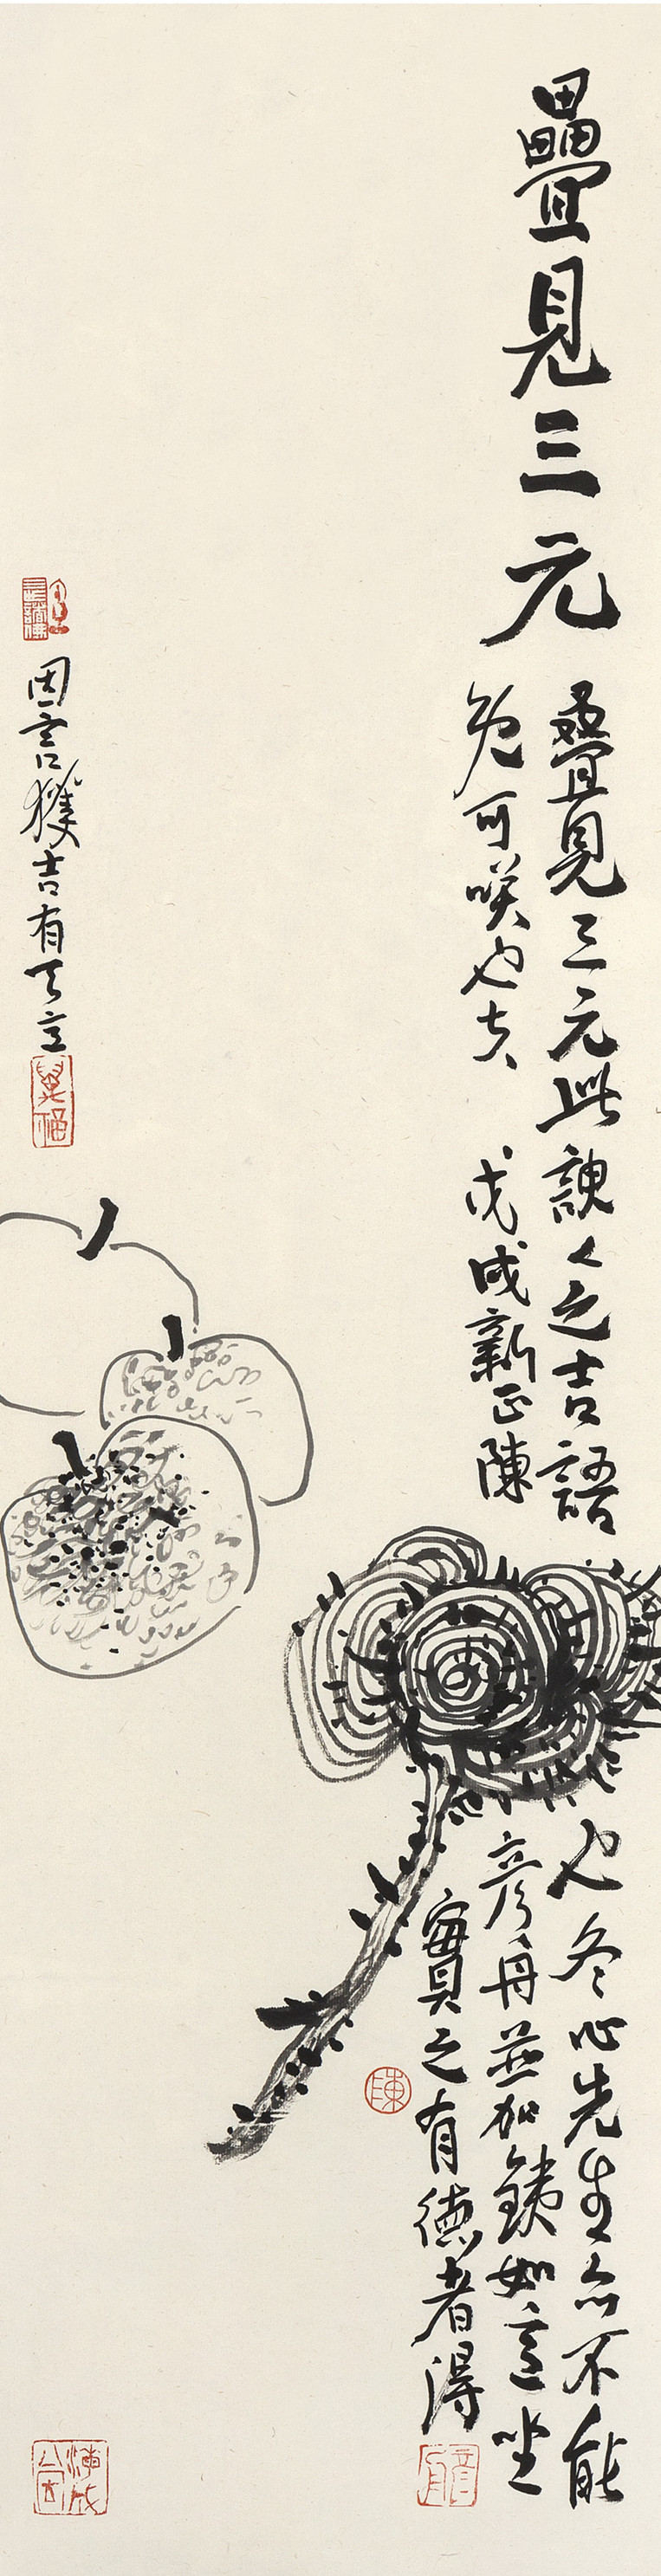 疊見三元
疊見三元此諛人之吉語
也冬心先生亦不能
免可咲也夫 戊戌新正陳
彥舟並加鐵如意坐
實之有德者得
因言獲吉有天意
陳